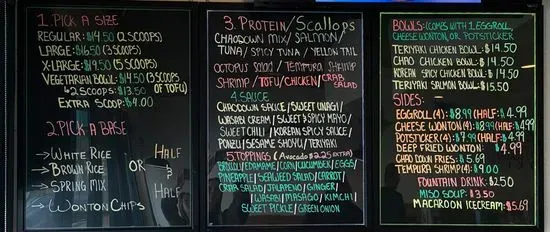 1. PICK A SIZE
REGULAR: $14.50 (2 SCOOPS)
LARGE: $16.50 (3 SCOOPS)
X-LARGE: $19.50 (5 SCOOPS)
VEGETARIAN BOWL: $14.50 (3 SCOOPS OF TOFU)
2 SCOOPS: $13.50
EXTRA SCOOP: $4.00
2. PICK A BASE
→ WHITE RICE
→ BROWN RICE
→ SPRING MIX
→ WONTON CHIPS
OR
HALF
&
HALF
3. PROTEIN/Scallops
CHAODOWN MIX/SALMON/
TUNA/SPICY TUNA/YELLOW TAIL
OCTOPUS SALAD/TEMPURA SHRIMP
SHRIMP/TOFU/CHICKEN/CRAB SALAD
4. SAUCE
CHAODOWN SAUCE/SWEET UNAGI/
WASABI CREAM/SWEET & SPICY MAYO/
SWEET CHILI/KOREAN SPICY SAUCE/
PONZU/SESAME SHOYU/TERIYAKI
5. TOPPINGS (Avocado $2.25 EXTRA)
EDAMAME/CORN/CUCUMBER/EGGS/
PINEAPPLE/SEAWEED SALAD/CARROT/
CRAB SALAD/JALAPENO/GINGER/
WASABI/MASAGO/KIMCHI/
SWEET PICKLE/GREEN ONION
BOWLS: (COMES WITH 1 EGGROLL,
CHEESE WONTON, OR POTSTICKER
TERIYAKI CHICKEN BOWL: $14.50
CHAO CHICKEN BOWL: $14.50
KOREAN SPICY CHICKEN BOWL: $14.50
TERIYAKI SALMON BOWL: $15.50
SIDES:
EGGROLL (4): $8.99 (HALF: $4.99
CHEESE WONTON (4): $8.99 (HALF: $4.99
POTSTICKER (4): $7.99 (HALF: $4.99
DEEP FRIED WONTON: $4.99
CHAO DOWN FRIES: $5.69
TEMPURA SHRIMP (4): $9.00
FOUNTAIN DRINK: $2.50
MISO SOUP: $3.50
MACAROON ICECREAM: $5.69